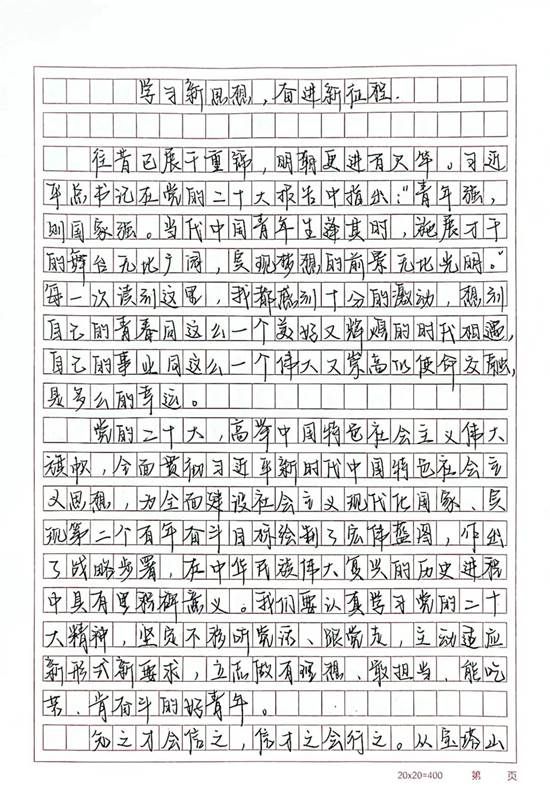 学习新思想，奋进新征程.
往昔已展千重锦，明朝更进百尺竿。习近
平总书记在党的二十大报告中指出："青年强，
则国家强。当代中国青年生逢其时，施展才干
的舞台无比广阔，实现梦想的前景无比光明。"
每一次读到这里，我都感到十分的激动，想到
自己的青春同这么一个美好又辉煌的时代相遇，
自己的事业同这么一个伟大又崇高的使命交融，
是多么的幸运。
党的二十大，高举中国特色社会主义伟大
旗帜，全面贯彻习近平新时代中国特色社会主
义思想，为全面建设社会主义现代化国家、实
现第二个百年奋斗目标绘制了宏伟蓝图，作出
了战略步署，在中华民族伟大复兴的历史进程
中具有里程碑意义。我们要认真学习党的二十
大精神，坚定不移听党话、跟党走，主动适应
新形式新要求，立志做有理想、敢担当、能吃
苦、肯奋斗的好青年。
知之才会信之，信才之会行之。从宝塔山
20x20=400 第 页